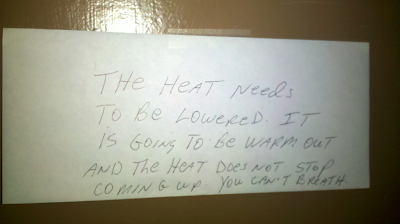 THE HEAT NEEDS
TO BE LOWERED. IT
IS GOING TO BE WARM OUT
AND THE HEAT DOES NOT STOP
COMING UP. YOU CAN'T BREATH.